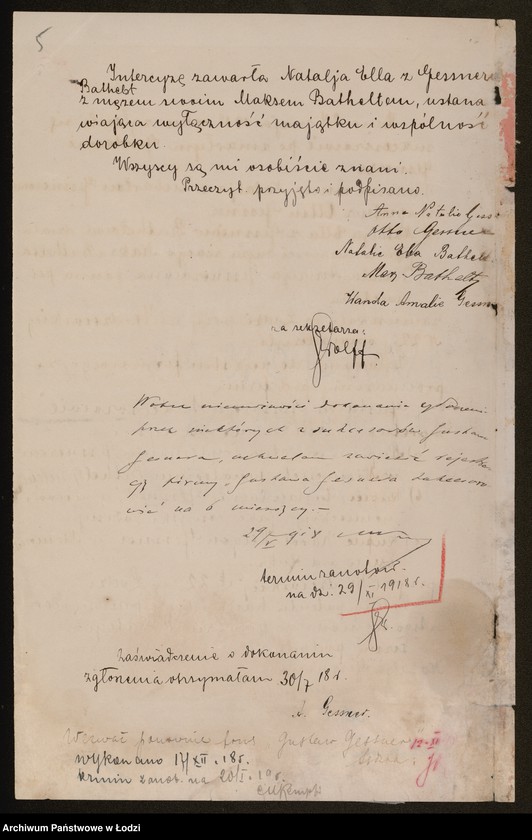 5
Intercyzę zawarła Natalja Ella z Gessner
Bathelt
z mężem swoim Maksem Batheltem, ustana
wiająca wyłączność majątku i wspólność
dorobku
Wszyscy są mi osobiście znani.
Przeczyt. przyjęto i podpisano.
Anna Natalie Gess
Otto Gessne
Natalie Ella Bathelt
Max Bathelt
Wanda Amalie Gessn
za sekretarza:
Wolff
Wobec niemożności dokonania
przez niektórych z sukcesorów Gustawa
Gesnera, zawiesić
firmy "Gustawa Gesnera sukceso
na 6 miesięcy.-
29/V 918
termin zanotow.
na dz. 29/XI 1918 r.
zaświadczenie o dokonaniu
zgłoszenia otrzymałam 30/7 18 r.
A. Gessner.
Wezwać ponownie Gustaw Gessner
12-XI
wykonano 17/XII. 18 r.
termin zanot. na 20/I
Archiwum Państwowe w Łodzi